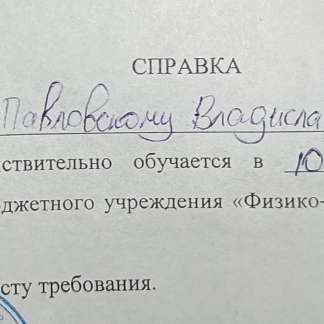 СПРАВКА
Павловскому Владисла
ствительно обучается в 10
джетного учреждения «Физико-
сту требования.